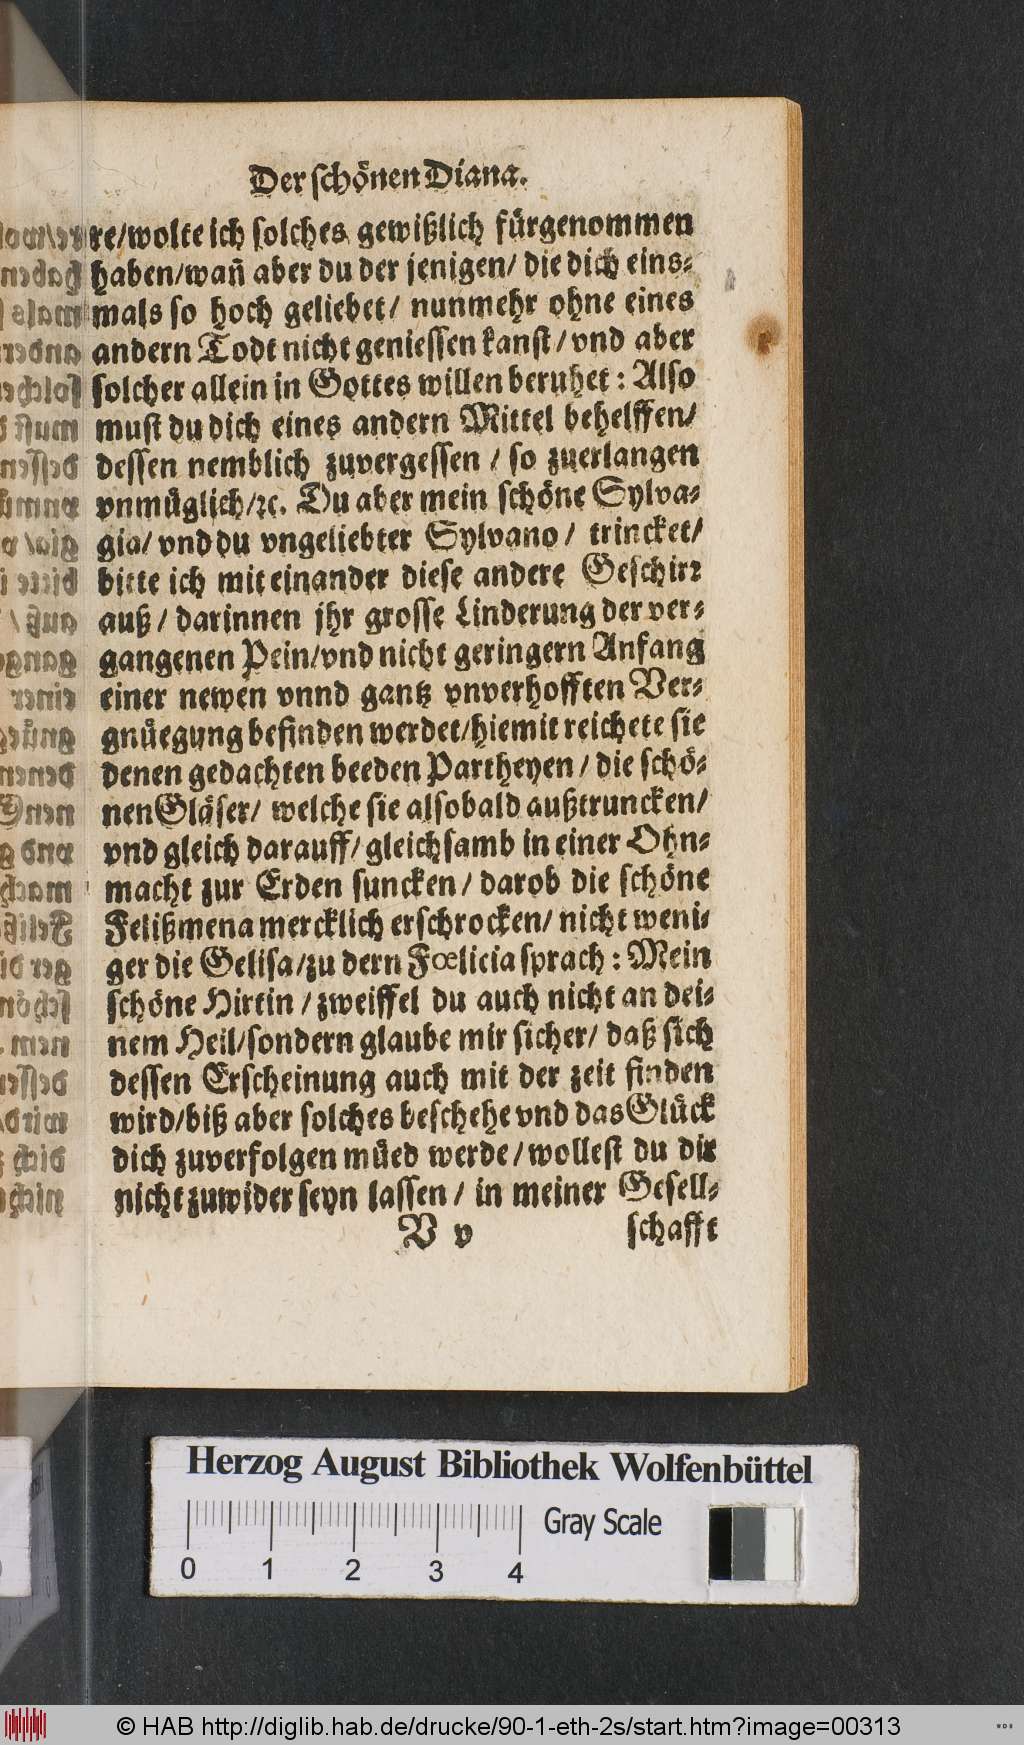 Der schönen Diana.
re/wolte ich solches gewißlich fürgenommen
haben/wañ aber du der jenigen/ die dich eins-
mals so hoch geliebet/ nunmehr ohne eines
andern Todt nicht geniessen kanst/vnd aber
solcher allein in Gottes willen beruhet: Also
must du dich eines andern Mittel behelffen/
dessen nemblich zuvergessen / so zuerlangen
vnmüglich/ꝛc. Du aber mein schöne Sylva-
gia/ vnd du vngeliebter Sylvano/ trincket/
bitte ich mit einander diese andere Geschirꝛ
auß / darinnen jhr grosse Linderung der ver-
gangenen Pein/vnd nicht geringern Anfang
einer newen vnnd gantz vnverhofften Ver-
gnüegung befinden werdet/hiemit reichete sie
denen gedachten beeden Partheyen/ die schö-
nen Gläser/ welche sie alsobald außtruncken/
vnd gleich darauff/gleichsamb in einer Ohn-
macht zur Erden suncken/ darob die schöne
Felißmena mercklich erschrocken/ nicht weni-
ger die Selisa/zu dern Fœlicia sprach: Mein
schöne Hirtin / zweiffel du auch nicht an dei-
nem Heil/sondern glaube mir sicher/ daß sich
dessen Erscheinung auch mit der zeit finden
wird/biß aber solches beschehe vnd das Glück
dich zuverfolgen müed werde/wollest du dir
nicht zuwider seyn lassen/ in meiner Gesell-
V v schafft
Herzog August Bibliothek Wolfenbüttel
Gray Scale
0 1 2 3 4
© HAB http://diglib.hab.de/drucke/90-1-eth-2s/start.htm?image=00313